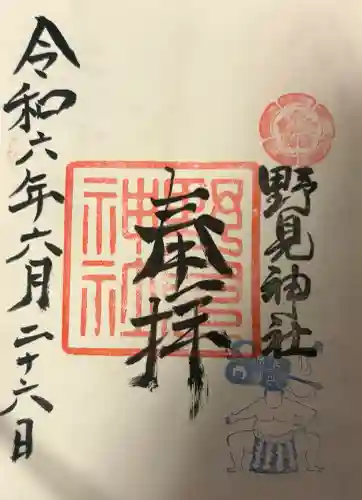 野見神社
奉拝
野見
神社
令和六年六月二十六日